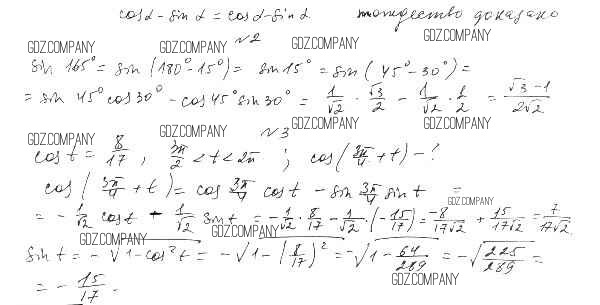 cosα - sinα = cosα - sinα. тождество доказано
GDZ.COMPANY GDZ.COMPANY N2 GDZ.COMPANY GDZ.COMPANY
sin 165° = sin (180° - 15°) = sin 15° = sin (45° - 30°) =
= sin 45° cos 30° - cos 45° sin 30° = 1/√2 · √3/2 - 1/√2 · 1/2 = (√3 - 1)/(2√2)
GDZ.COMPANY GDZ.COMPANY N3 GDZ.COMPANY GDZ.COMPANY
cos t = 8/17, 3π/2 < t < 2π ; cos(3π/4 + t) - ?
cos(3π/4 + t) = cos 3π/4 cos t - sin 3π/4 sin t =
GDZ.COMPANY
= - 1/√2 cos t - 1/√2 sin t = - 1/√2 · 8/17 - 1/√2 · (- 15/17) = -8/17√2 + 15/17√2 = 7/17√2.
GDZ.COMPANY GDZ.COMPANY
sin t = - √(1 - cos² t) = - √(1 - (8/17)²) = - √(1 - 64/289) = - √(225/289) =
GDZ.COMPANY
= - 15/17.